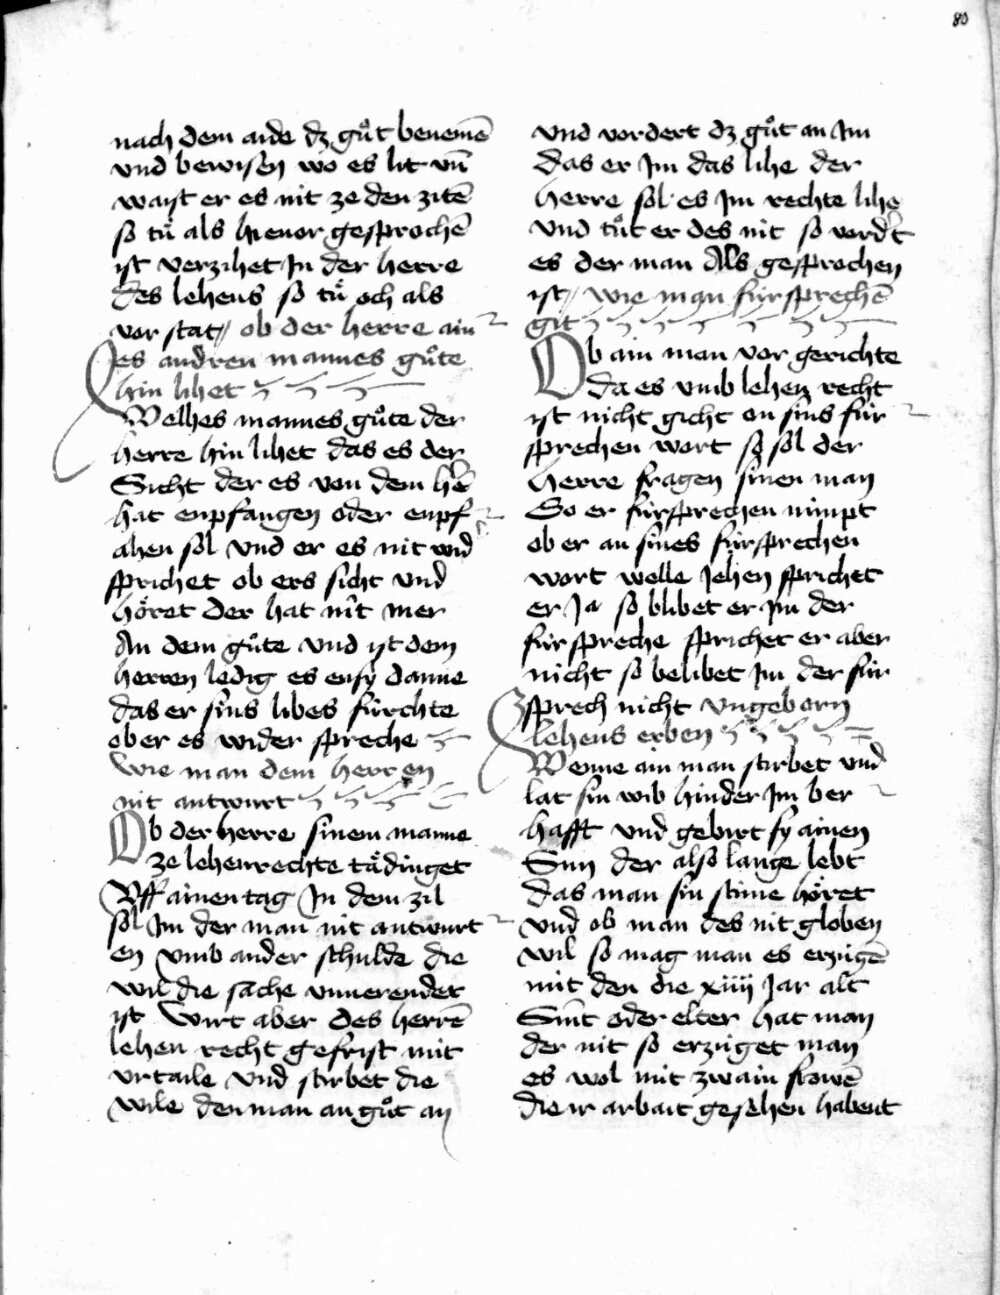 80
nach dem aide dz guͦt benemē
vnd bewisen wo es lit vn̄
waist er es nit ze den zitē
so tuͦ als hieuor gesprochē
ist verzihet Jn der herre
des lehens so tuͦ och als
vor stat ob der herre ain
es andren mannes guͦte
hin lihet
Welhes mannes guͦte der
herre hin lihet das es der
Sicht der es von dem hrē
hat enpfangen oder enpf
ahen sol vnd er es nit wid̛
sprichet ob ers sicht vnd
hoͤret der hat nit mer
An dem guͦte vnd ist dem
herren ledig es ensy danne
das er sins libes fürchte
ob er es wider spreche
wie man dem herren
nit antwurt
Ob der herre sinem manne
ze lehenrechte taͤdinget
Vff ainen tag Jn dem zil
sol Jm der man nit antwurt
en vmb ander schulde die
wil die sache vnuerendet
ist Wirt aber des herrē
lehen recht gefrist mit
vrtaile vnd stirbet die
wile den man an guͦt an
vnd vordert dz guͦt an Jm
das er Jm das lihe der
herre sol es Jm rechte lihe
vnd tuͦt er des nit so vord̛t
es der man Als gesprochen
ist wie man fürsprechē
git
Ob ain man vor gerichte
da es vmb lehen recht
ist nicht gicht on sins für
sprechen wort so sol der
herre fragen sinen man
So er fürsprechen nimpt
ob er an sines fürsprechen
wort welle Jehen sprichet
er Ja so blibet er Jm der
fürspreche sprichet er aber
nicht so belibet Jm der für
sprech nicht vngeborn
lehens erben
Wenne ain man stirbet vnd
lat sin wib hinder Jm ber
hafft vnd gebirt sy ainen
Sun der also lange lebt
das man sin stime hoͤret
vnd ob man des nit globen
wil so mag man es erzugē
mit den die xiiij Jar alt
Sint oder elter hat man
der nit so erzuget man
es wol mit zwain frowē
die ir arbait gesehen habent